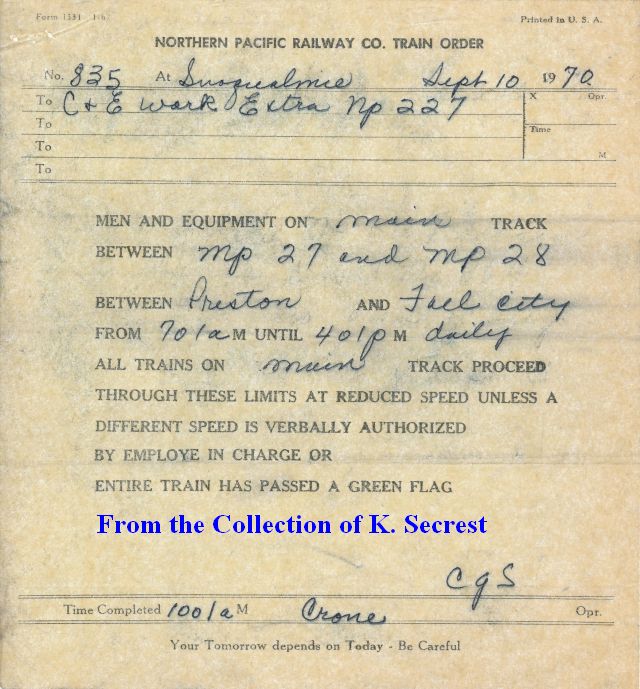 Form 1331 1-67 Printed in U. S. A.
NORTHERN PACIFIC RAILWAY CO. TRAIN ORDER
No. 835 At Snoqualmie Sept 10 1970
To C & E Work Extra NP 227 X Opr.
To Time
To M
To
MEN AND EQUIPMENT ON main TRACK
BETWEEN MP 27 and MP 28
BETWEEN Preston AND Fall City
FROM 701a M UNTIL 401p M daily
ALL TRAINS ON main TRACK PROCEED
THROUGH THESE LIMITS AT REDUCED SPEED UNLESS A
DIFFERENT SPEED IS VERBALLY AUTHORIZED
BY EMPLOYE IN CHARGE OR
ENTIRE TRAIN HAS PASSED A GREEN FLAG
From the Collection of K. Secrest
CGS
Time Completed 1001a M Crone Opr.
Your Tomorrow depends on Today - Be Careful